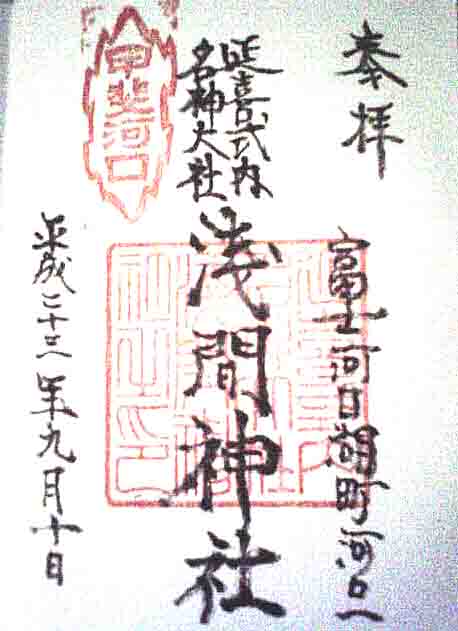 奉拝
富士河口湖町河口一
延喜式内
名神大社
浅間神社
平成二十三年九月十日
甲斐河口